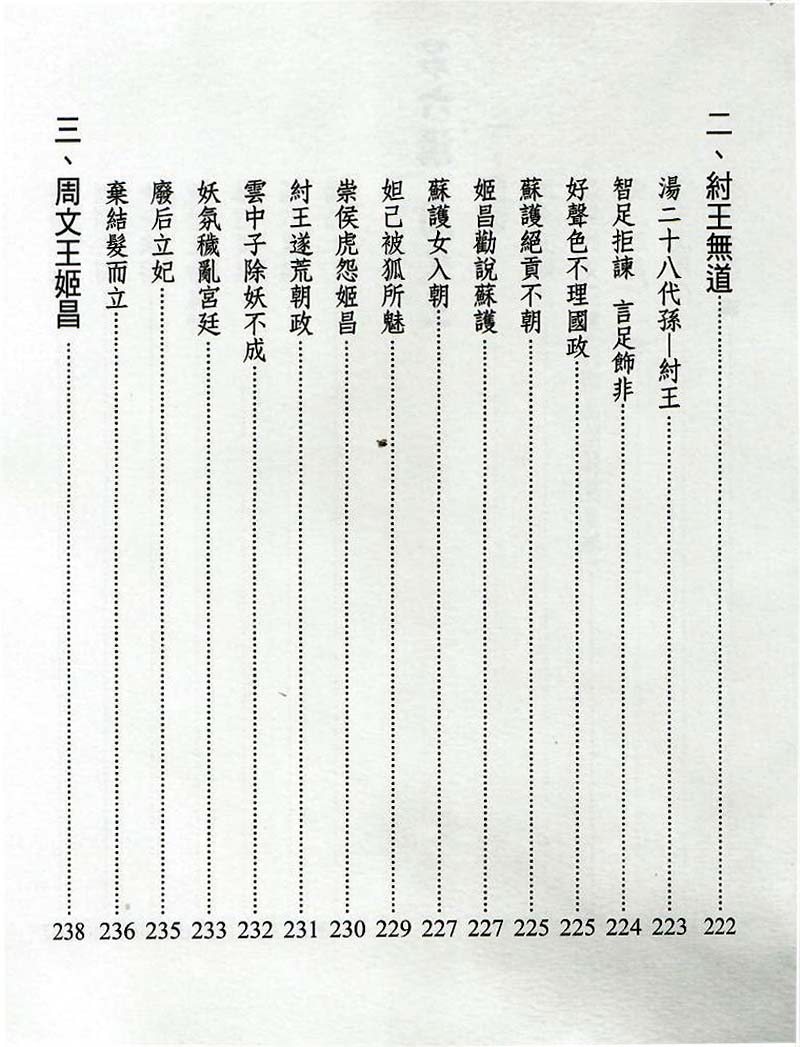 二、紂王無道……222
湯二十八代孫—紂王……223
智足拒諫　言足飾非……224
好聲色不理國政……225
蘇護絕貢不朝……225
姬昌勸說蘇護……227
蘇護女入朝……227
妲己被狐所魅……229
崇侯虎怨姬昌……230
紂王遂荒朝政……231
雲中子除妖不成……232
妖氛穢亂宮廷……233
廢后立妃……235
棄結髮而立……236
三、周文王姬昌……238